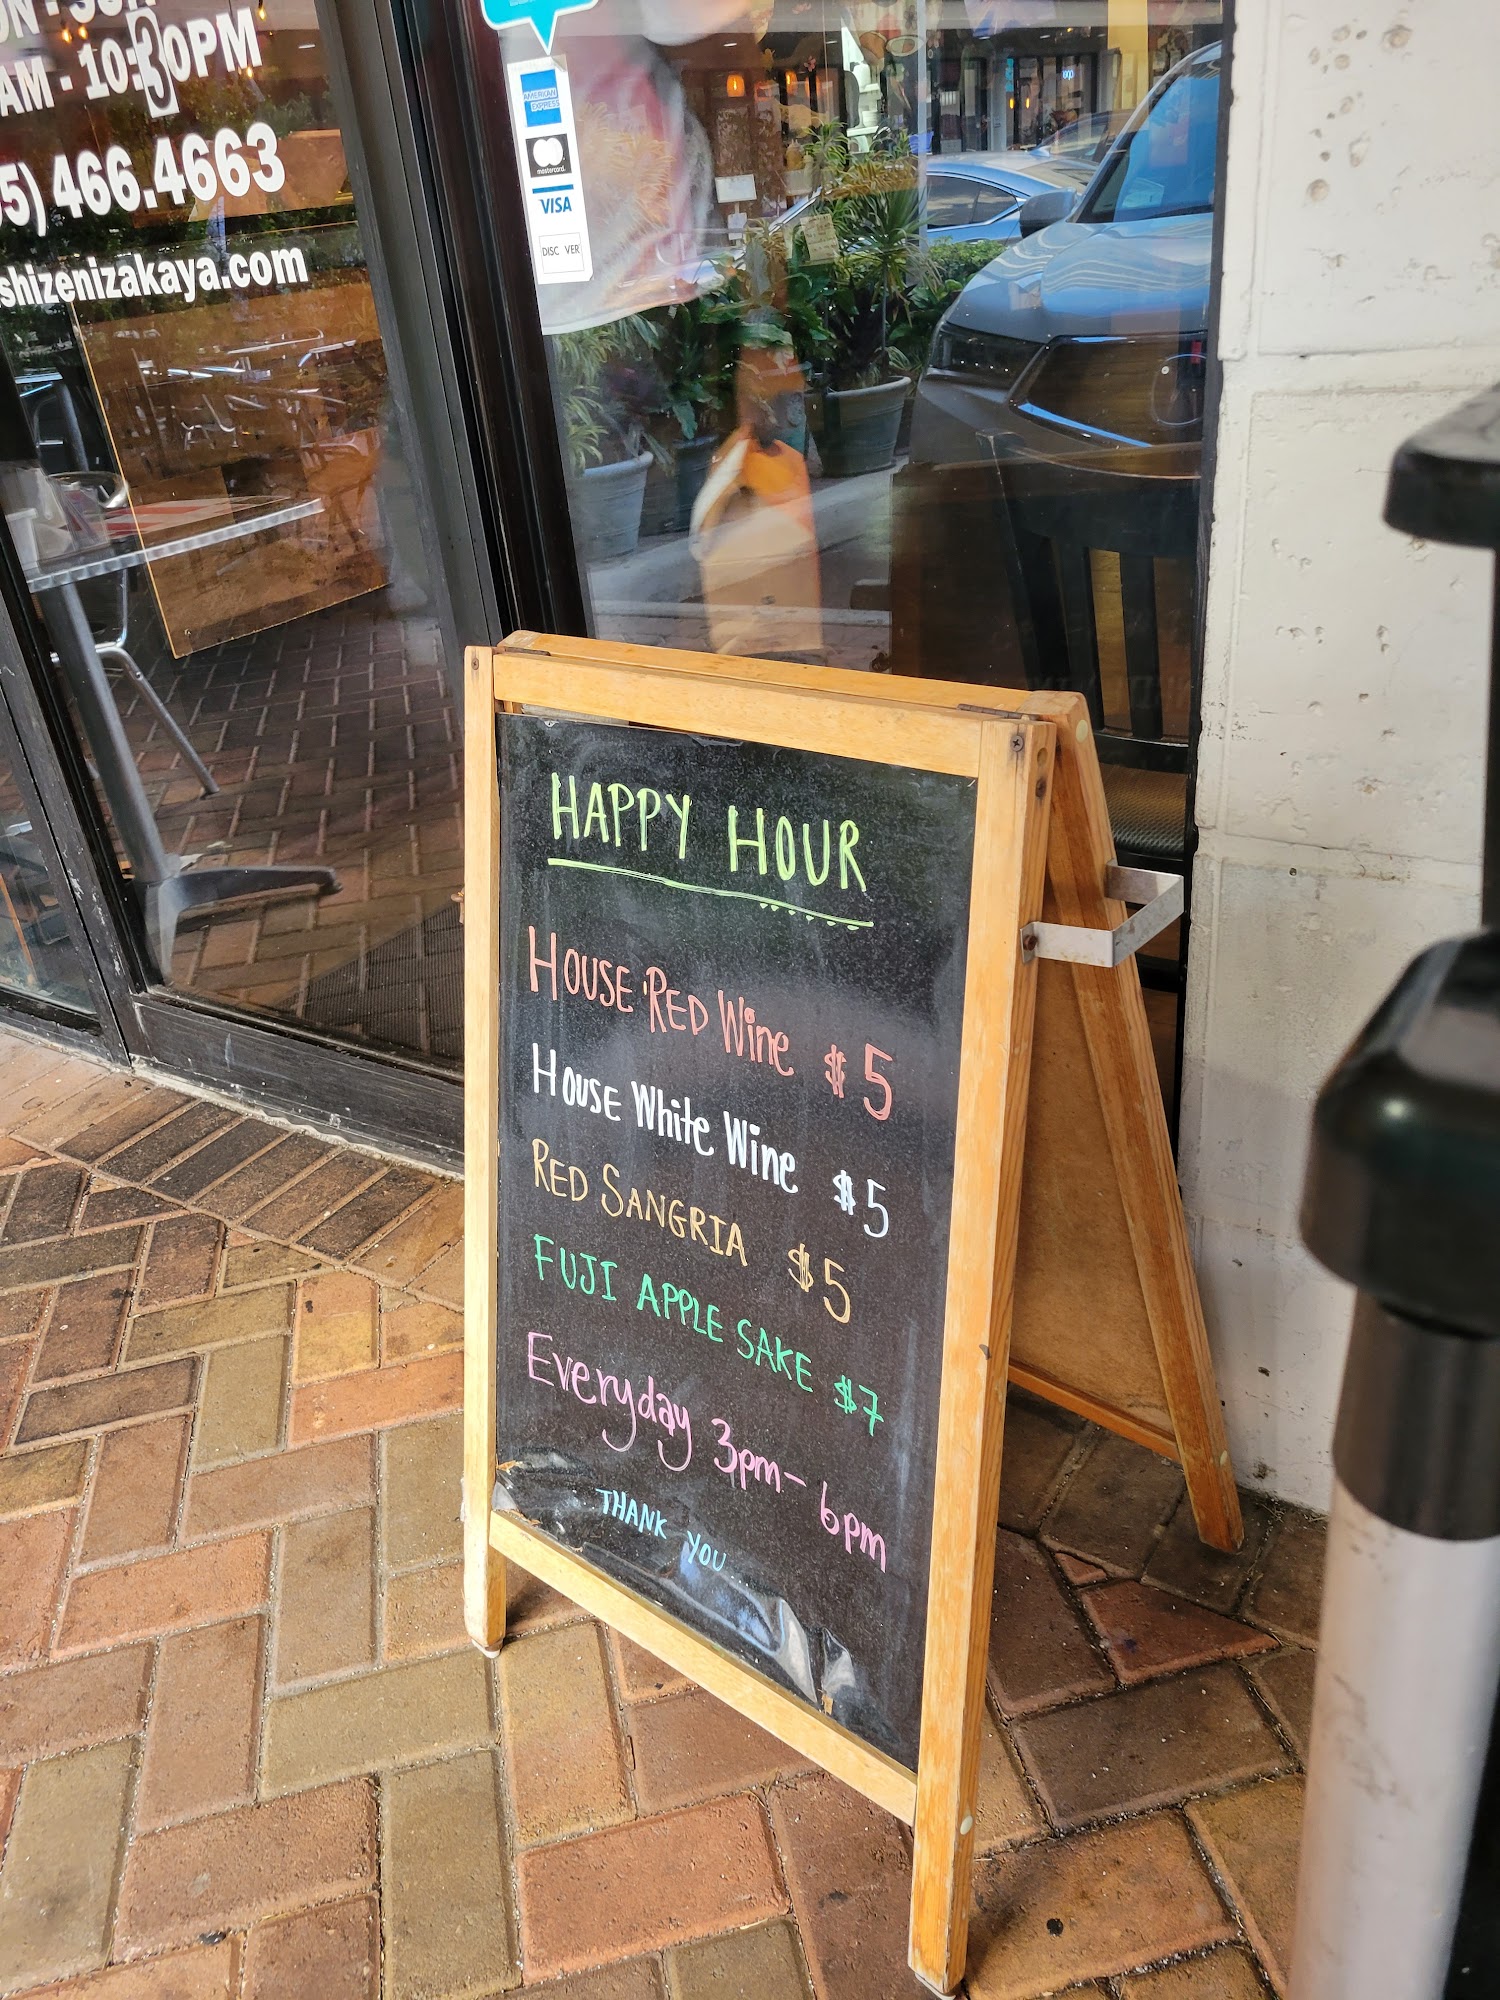 AM - 10:30PM
5) 466.4663
shizenizakaya.com
AMERICAN
EXPRESS
mastercard
VISA
DISC VER
HAPPY HOUR
HOUSE RED Wine $5
HOUSE White Wine $5
RED SANGRIA $5
FUJI APPLE SAKE $7
Everyday 3pm - 6pm
THANK YOU...